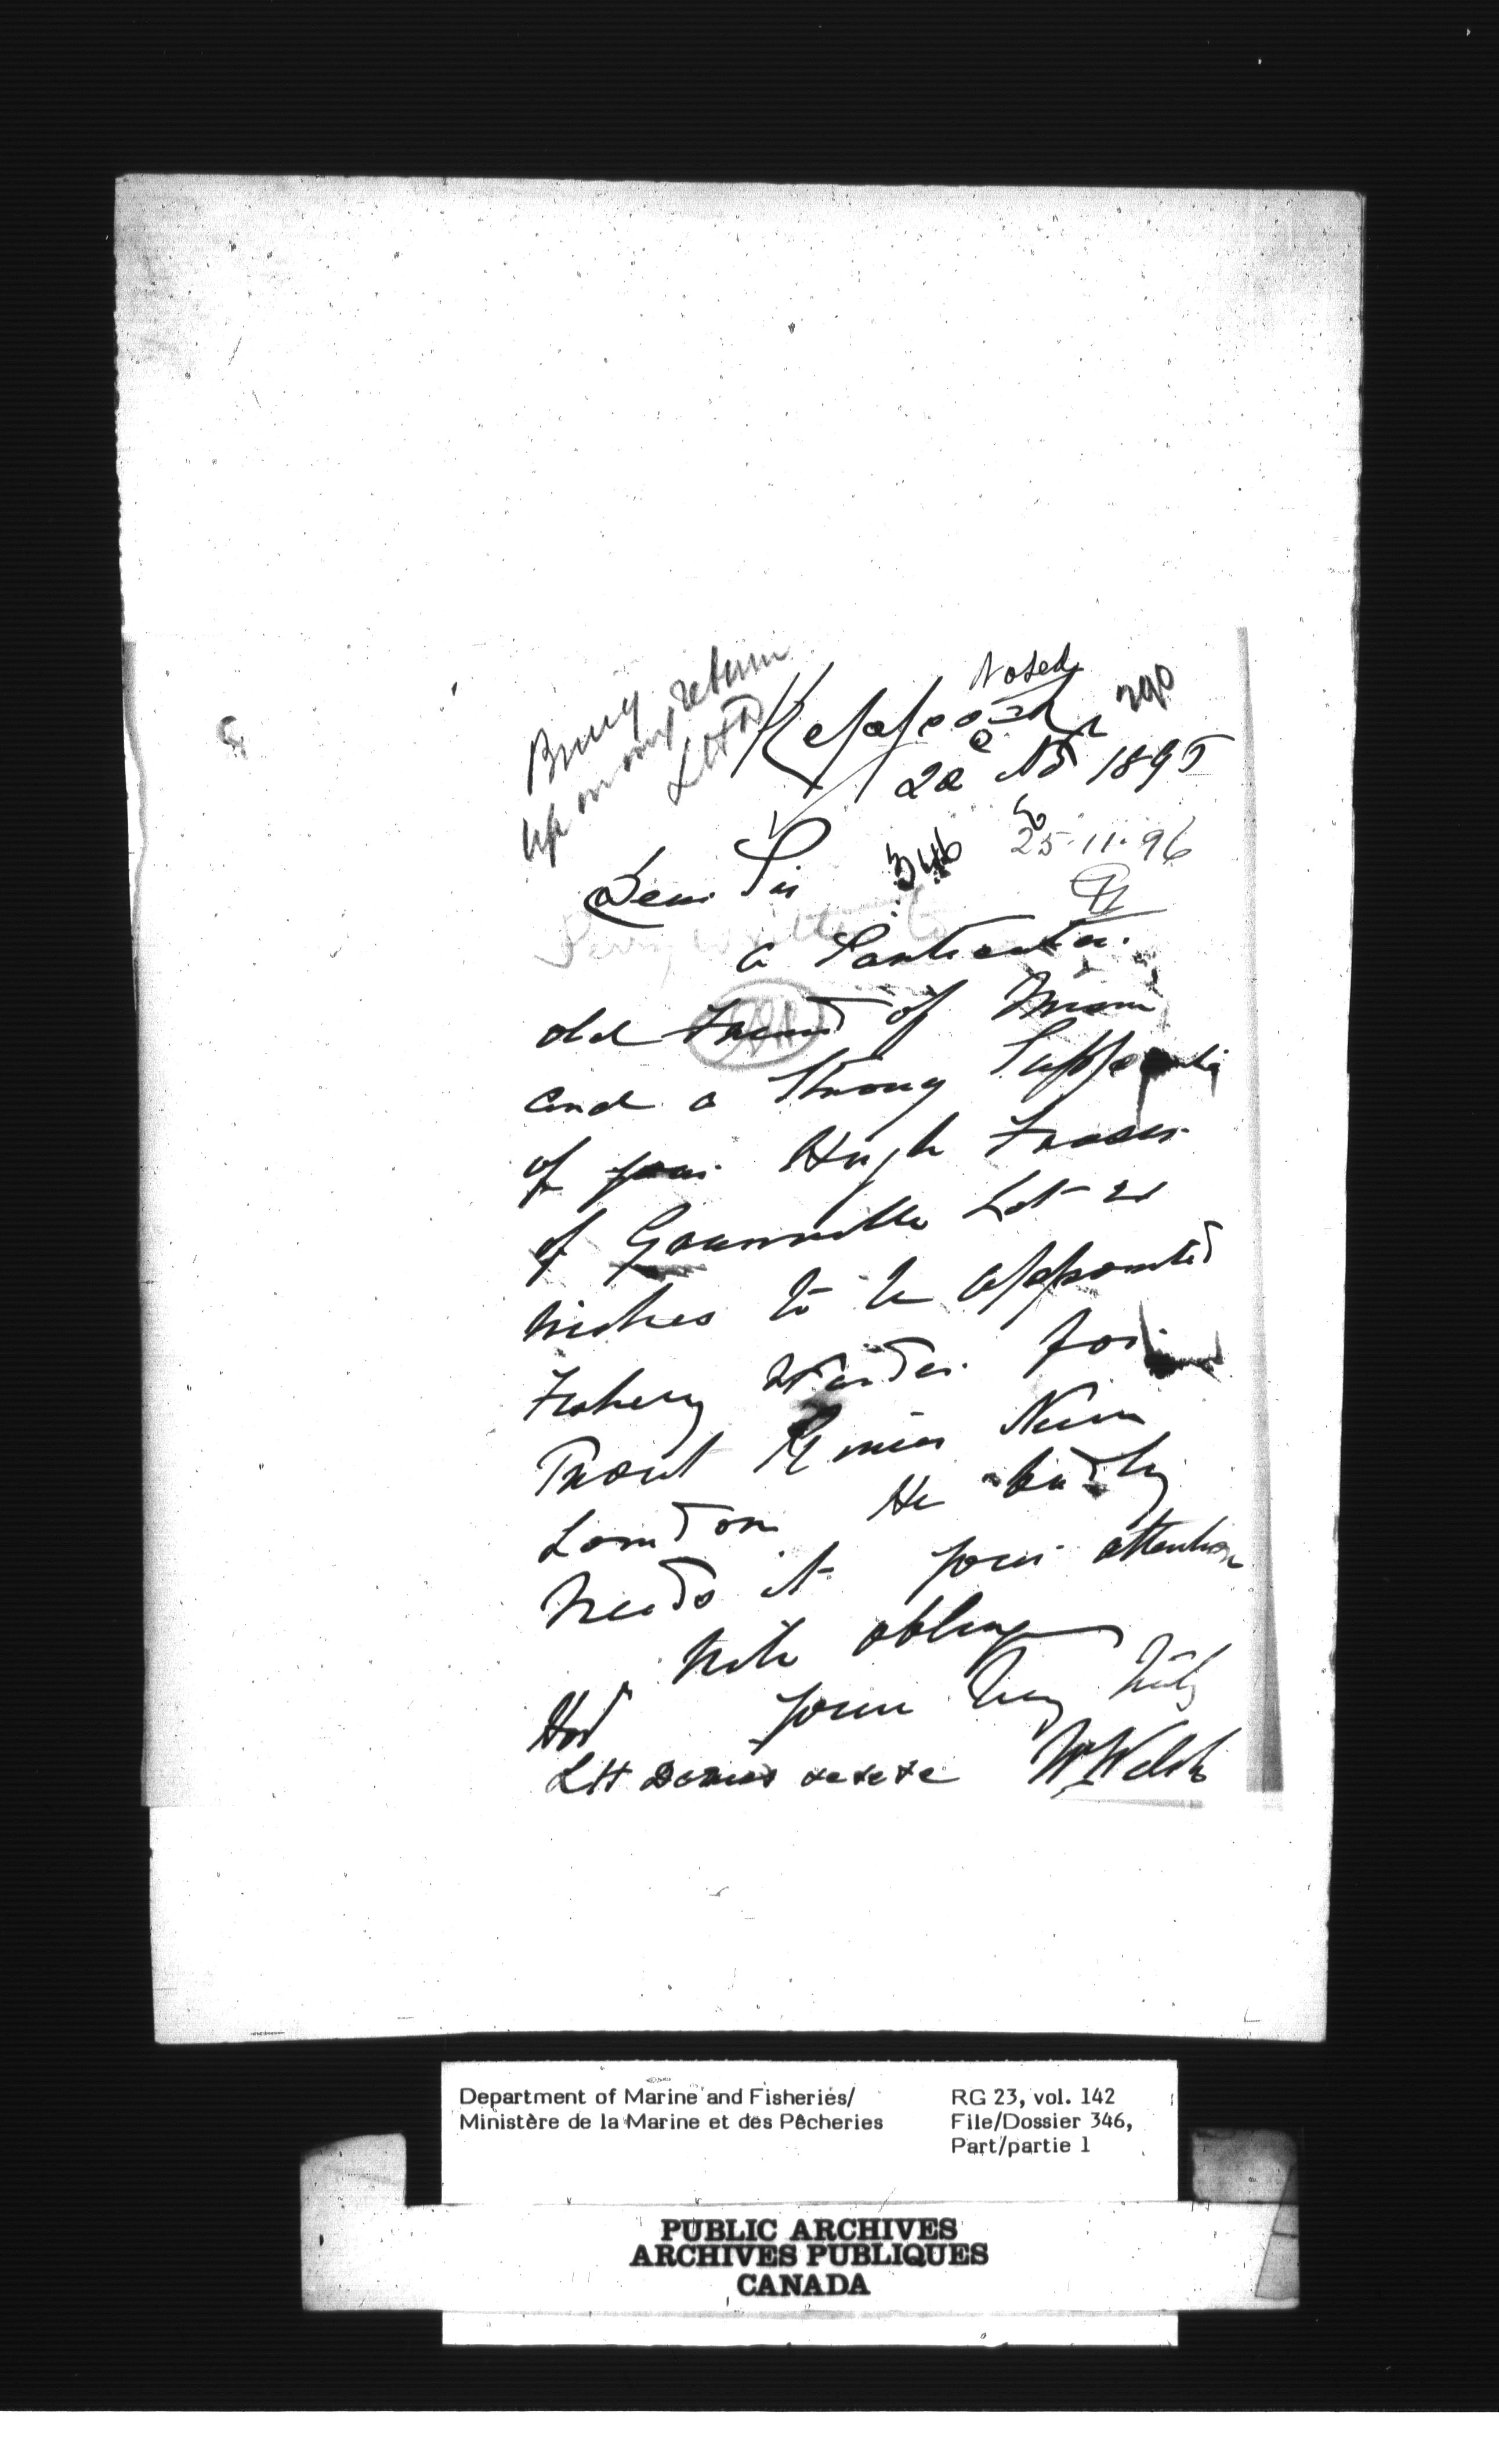 Bring
up on my return
LHD
Noted
Keppoch
290
20 Nov 1895
25-11-96
346
Dear Sir
Perry written to
a Particular
old Friend of Mine
and a Strong Supporter
of your Hugh Fraser
of Granville Lot 21
wishes to be appointed
Fishery Warden for
Trout River New
London He badly
needs it your attention
will oblige
yours Very truly
Hon
LH Davies &c &c &c W Welsh
Department of Marine and Fisheries/
Ministère de la Marine et des Pêcheries
RG 23, vol. 142
File/Dossier 346,
Part/partie 1
PUBLIC ARCHIVES
ARCHIVES PUBLIQUES
CANADA